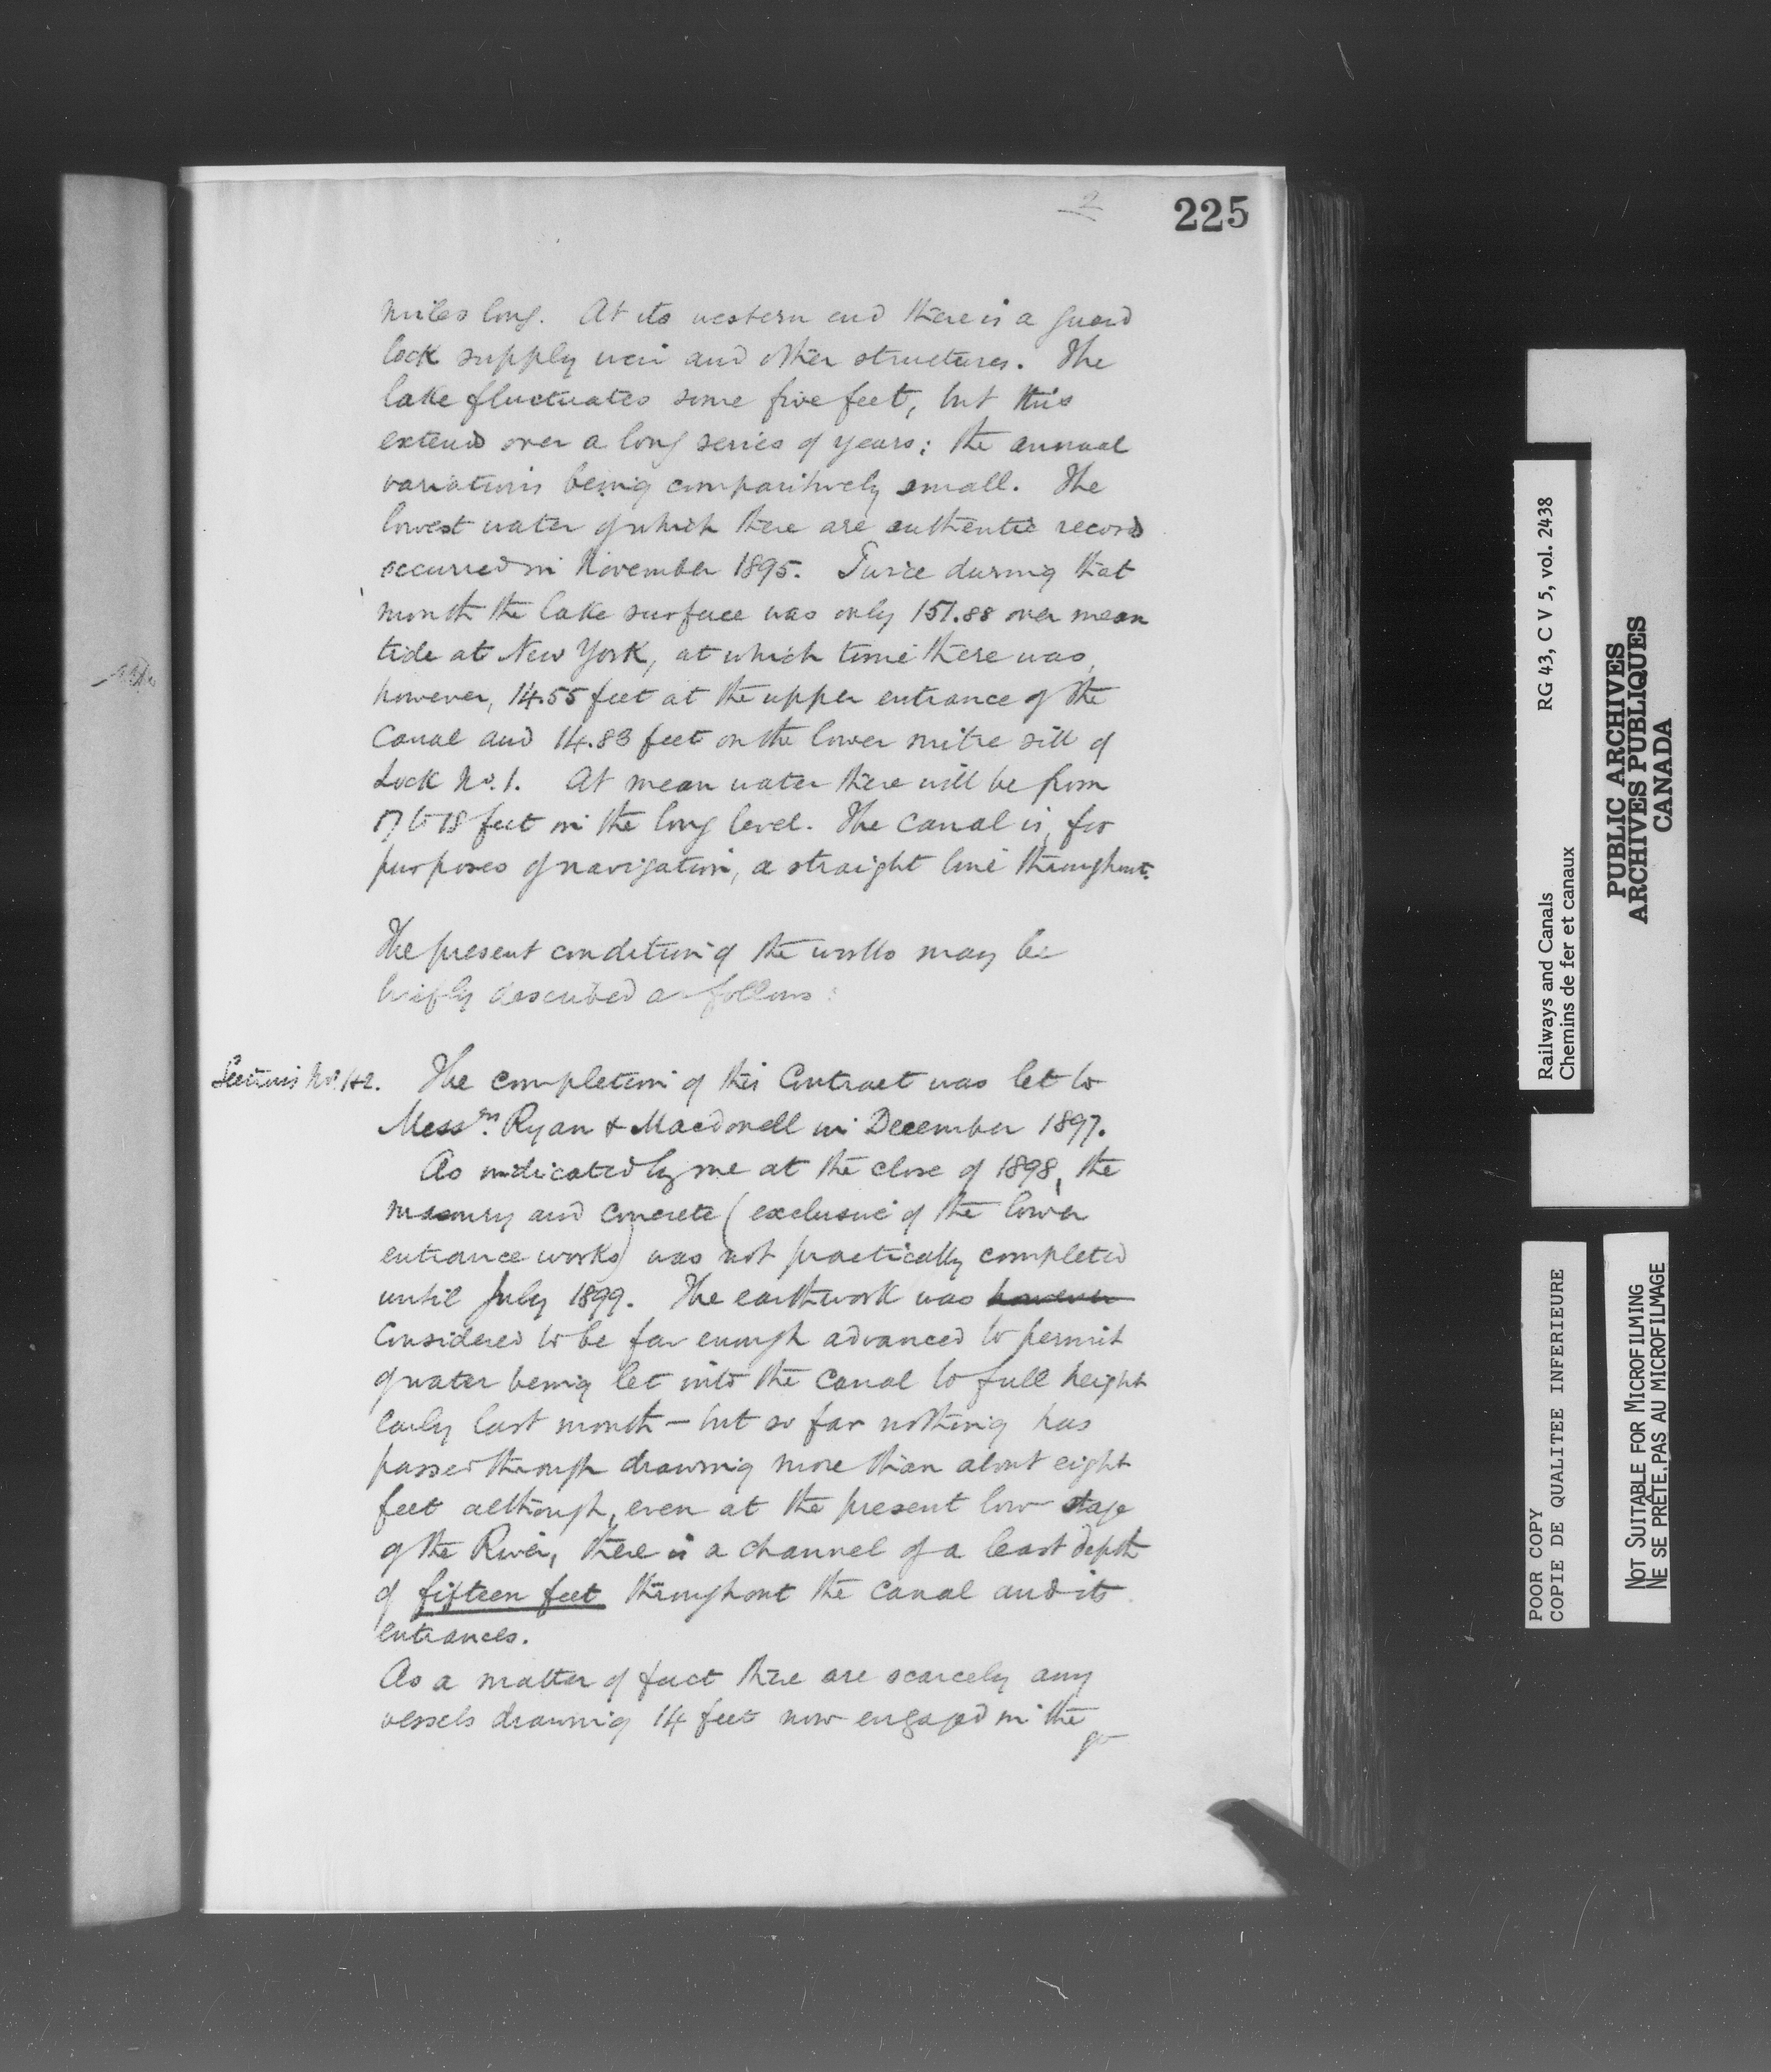 2
225
miles long. At its western end there is a guard
lock supply weir and other structures. The
lake fluctuates some five feet, but this
extends over a long series of years; the annual
variations being comparitively small. The
lowest water of which there are authentic records
occurred in November 1895. Twice during that
month the lake surface was only 151.88 over mean
tide at New York, at which time there was,
however, 14.55 feet at the upper entrance of the
Canal and 14.83 feet on the lower mitre sill of
Lock No. 1. At mean water there will be from
17 to 18 feet on the long level. The canal is, for
purposes of navigation, a straight line throughout.
The present condition of the works may be
briefly described as follows:
Sections Nos. 1 & 2. The completion of this Contract was let to
Messrs. Ryan & Macdonell in December 1897.
As indicated by me at the close of 1898, the
masonry and concrete (exclusive of the lower
entrance works) was not practically completed
until July 1899. The earthwork was however
Considered to be far enough advanced to permit
of water being let into the canal to full height
early last month - but so far nothing has
passed through drawing more than about eight
feet although, even at the present low stage
of the River, there is a channel of a least depth
of fifteen feet throughout the canal and its
entrances.
As a matter of fact there are scarcely any
vessels drawing 14 feet now engaged in the
Railways and Canals RG 43, C V 5, vol. 2438
Chemins de fer et canaux
PUBLIC ARCHIVES
ARCHIVES PUBLIQUES
CANADA
POOR COPY
COPIE DE QUALITEE INFERIEURE
NOT SUITABLE FOR MICROFILMING
NE SE PRÊTE.PAS AU MICROFILMAGE